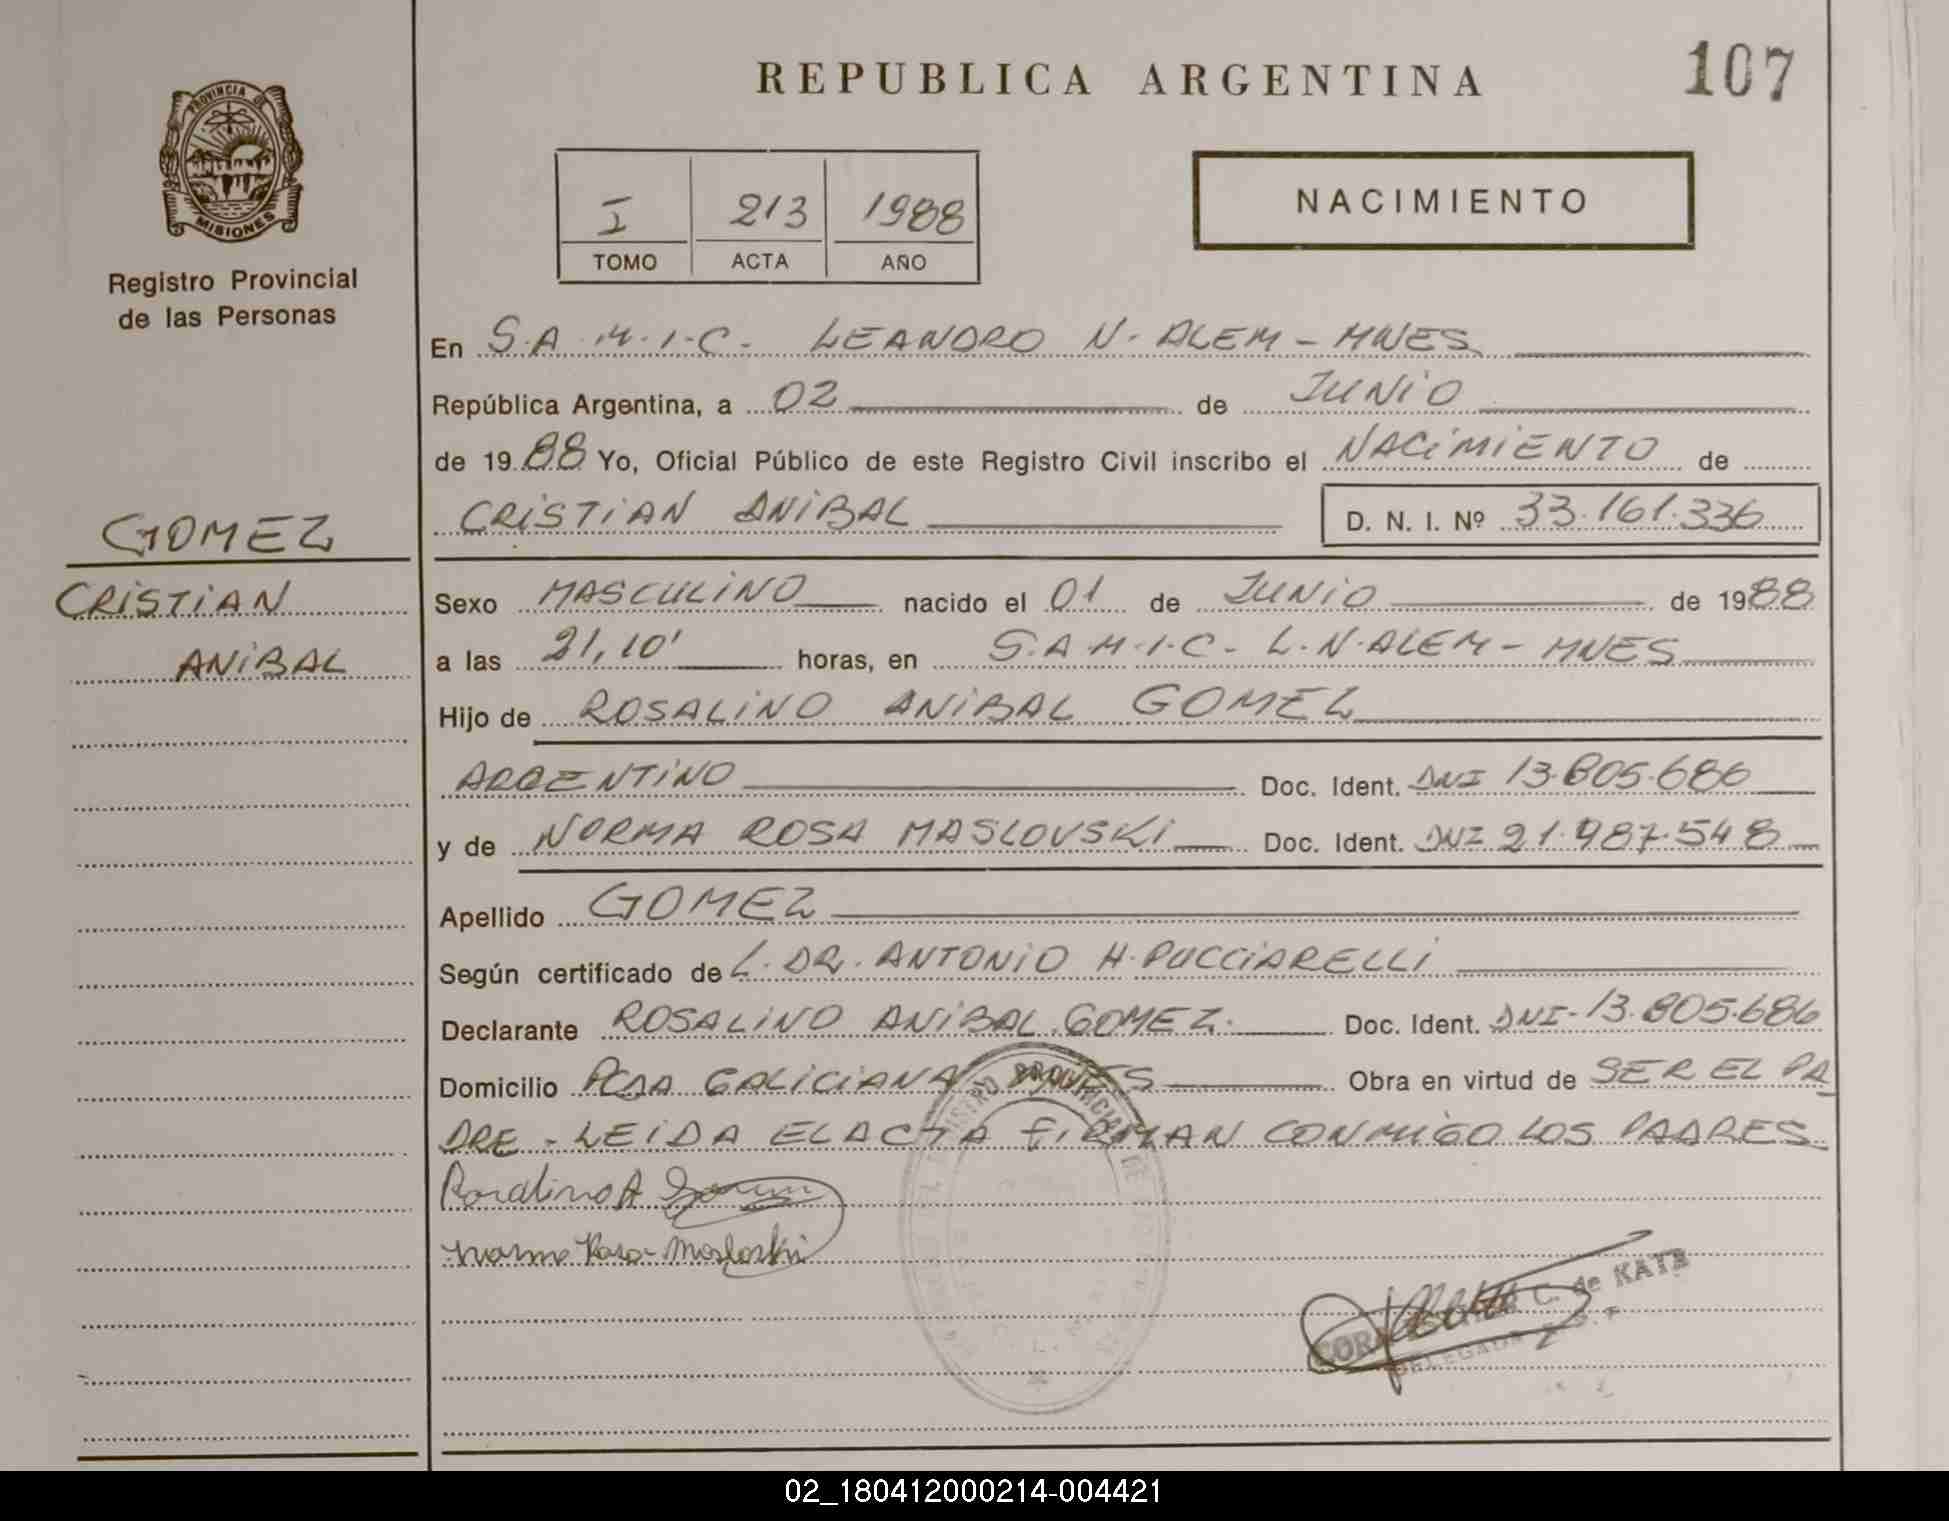 REPUBLICA ARGENTINA
107
PROVINCIA DE
MISIONES
Registro Provincial
de las Personas
I 213 1988
TOMO ACTA AÑO
NACIMIENTO
En S.A.M.I.C. LEANDRO N. ALEM - MNES
República Argentina, a 02 de JUNIO
de 1988 Yo, Oficial Público de este Registro Civil inscribo el NACIMIENTO de
CRISTIAN ANIBAL D. N. I. Nº 33.161.336
GOMEZ
CRISTIAN
ANIBAL
Sexo MASCULINO nacido el 01 de JUNIO de 1988
a las 21,10' horas, en S.A.M.I.C - L.N.ALEM - MNES
Hijo de ROSALINO ANIBAL GOMEZ
ARGENTINO Doc. Ident. DNI 13.805.686
y de NORMA ROSA MASLOVSKI Doc. Ident. DNI 21.987.548
Apellido GOMEZ
Según certificado de L. DR. ANTONIO H. PUCCIARELLI
Declarante ROSALINO ANIBAL GOMEZ. Doc. Ident. DNI-13.805.686
Domicilio PCDA GALICIANA MNES Obra en virtud de SER EL PA
DRE - LEIDA EL ACTA FIRMAN CONMIGO LOS PADRES
Rosalino A Gomez
Norma Rosa Masloski
C. de KATA
DELEGADA
02_180412000214-004421